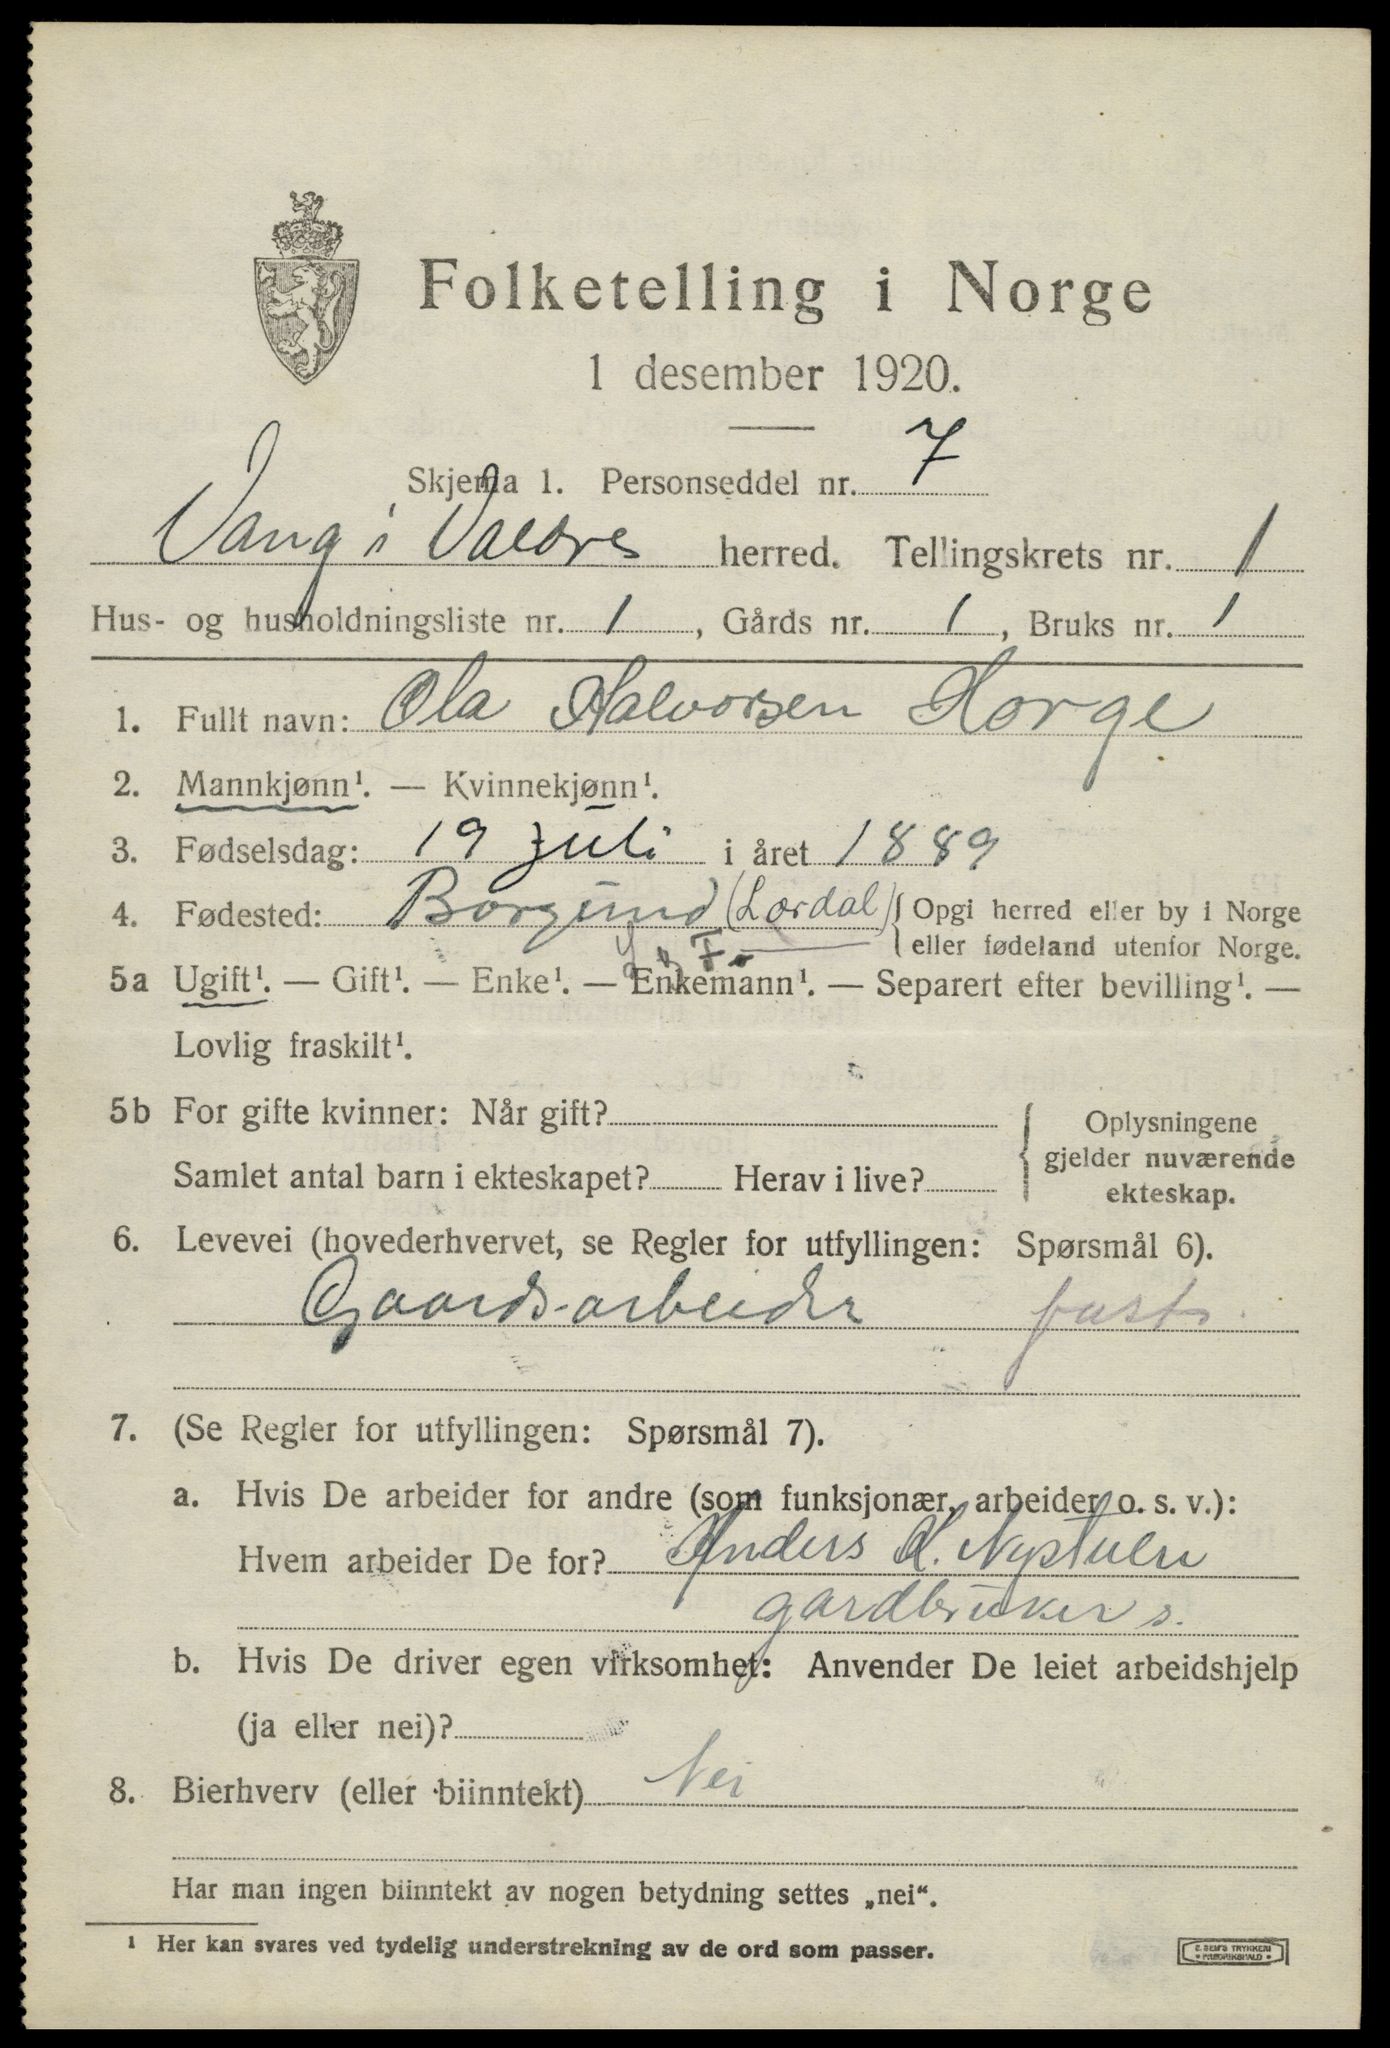 Folketelling i Norge
1 desember 1920.
Skjema 1. Personseddel nr. 7
Vang i Valdres herred. Tellingskrets nr. 1
Hus- og husholdningsliste nr. 1, Gårds nr. 1, Bruks nr. 1
1. Fullt navn: Ola Halvorsen Horge
2. Mannkjønn¹. — Kvinnekjønn¹.
3. Fødselsdag: 19 juli i året 1889
4. Fødested: Borgund (Lærdal) { Opgi herred eller by i Norge
eller fødeland utenfor Norge.
S. og Fj.
5a Ugift¹. — Gift¹. — Enke¹. — Enkemann¹. — Separert efter bevilling¹. —
Lovlig fraskilt¹.
5b For gifte kvinner: Når gift?
Samlet antal barn i ekteskapet? Herav i live?
{ Oplysningene
gjelder nuværende
ekteskap.
6. Levevei (hovederhvervet, se Regler for utfyllingen: Spørsmål 6).
Gaardsarbeider fast
7. (Se Regler for utfyllingen: Spørsmål 7).
a. Hvis De arbeider for andre (som funksjonær, arbeider o. s. v.):
Hvem arbeider De for? Anders K. Nystuen
gardbruker s.
b. Hvis De driver egen virksomhet: Anvender De leiet arbeidshjelp
(ja eller nei)?
8. Bierhverv (eller biinntekt) Nei
Har man ingen biinntekt av nogen betydning settes „nei“.
¹ Her kan svares ved tydelig understrekning av de ord som passer.
E. SEM'S TRYKKERI
• FREDRIKSHALD •